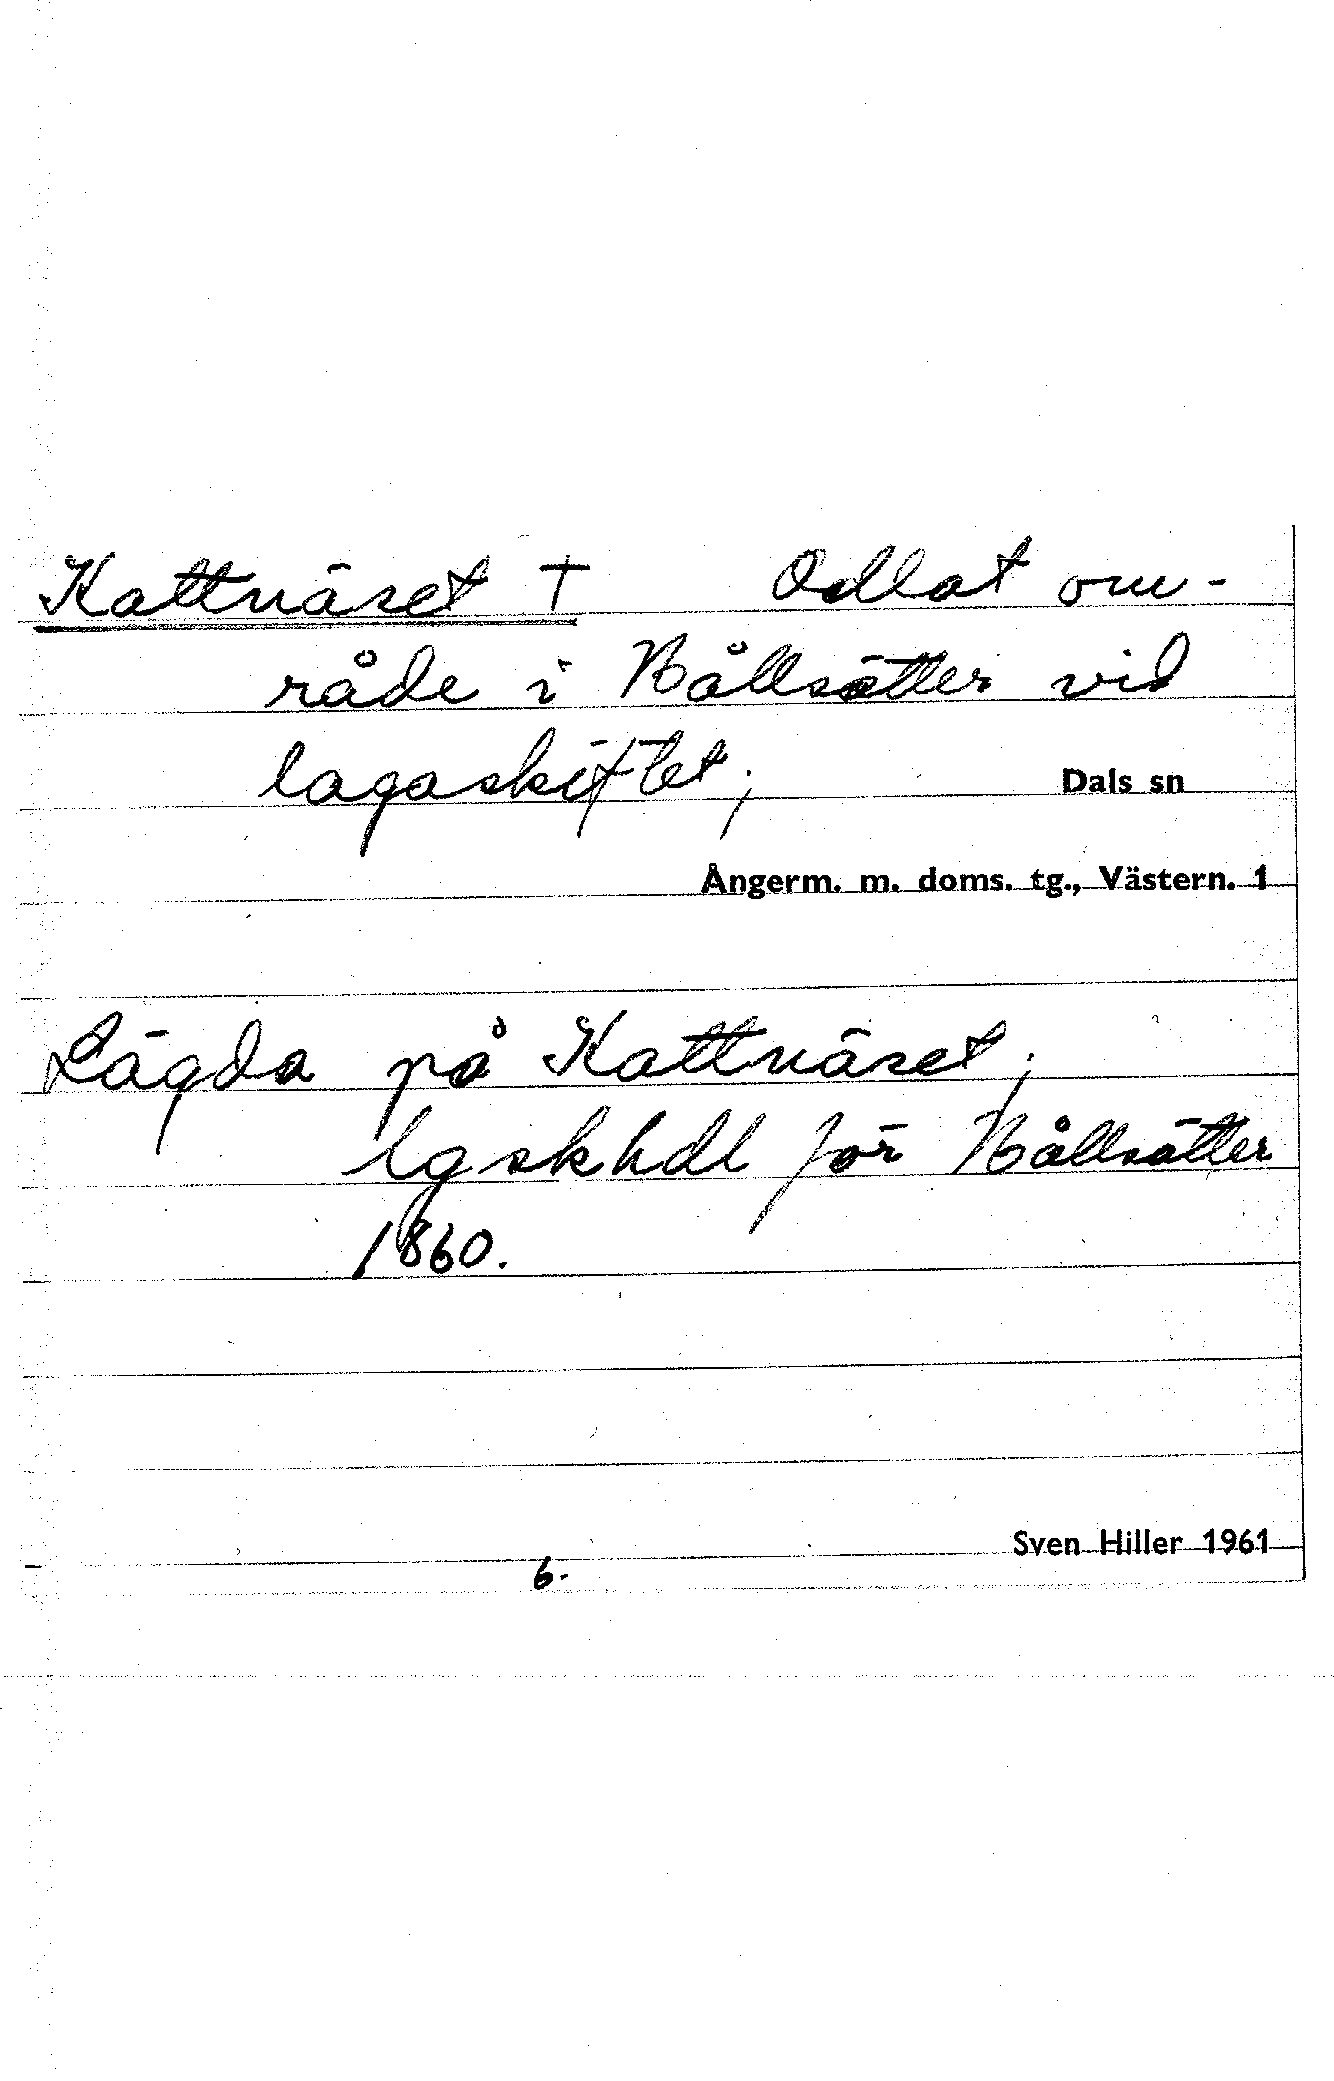 Kattnäset † Odlat om-
råde i Bållsätter vid
lagaskiftet;
Dals sn
Ångerm. m. doms. tg., Västern. 1
Lägda på Kattnäset;
lgskhdl för Bållsätter
1860.
Sven Hiller 1961
6.